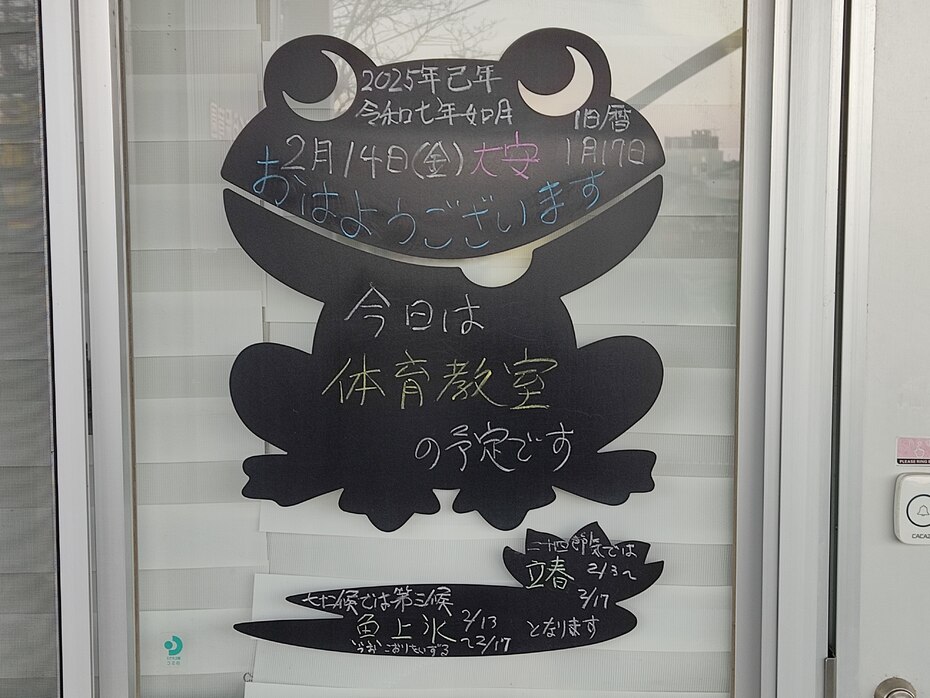 2025年己年
令和七年如月
旧暦
1月17日
2月14日(金)大安
おはようございます
今日は
体育教室
の予定です
二十四節気では
立春 2/3~
2/17
となります
七十二候では第三候
魚上氷 2/13
~2/17
うおこおりをいずる
PLEASE RING